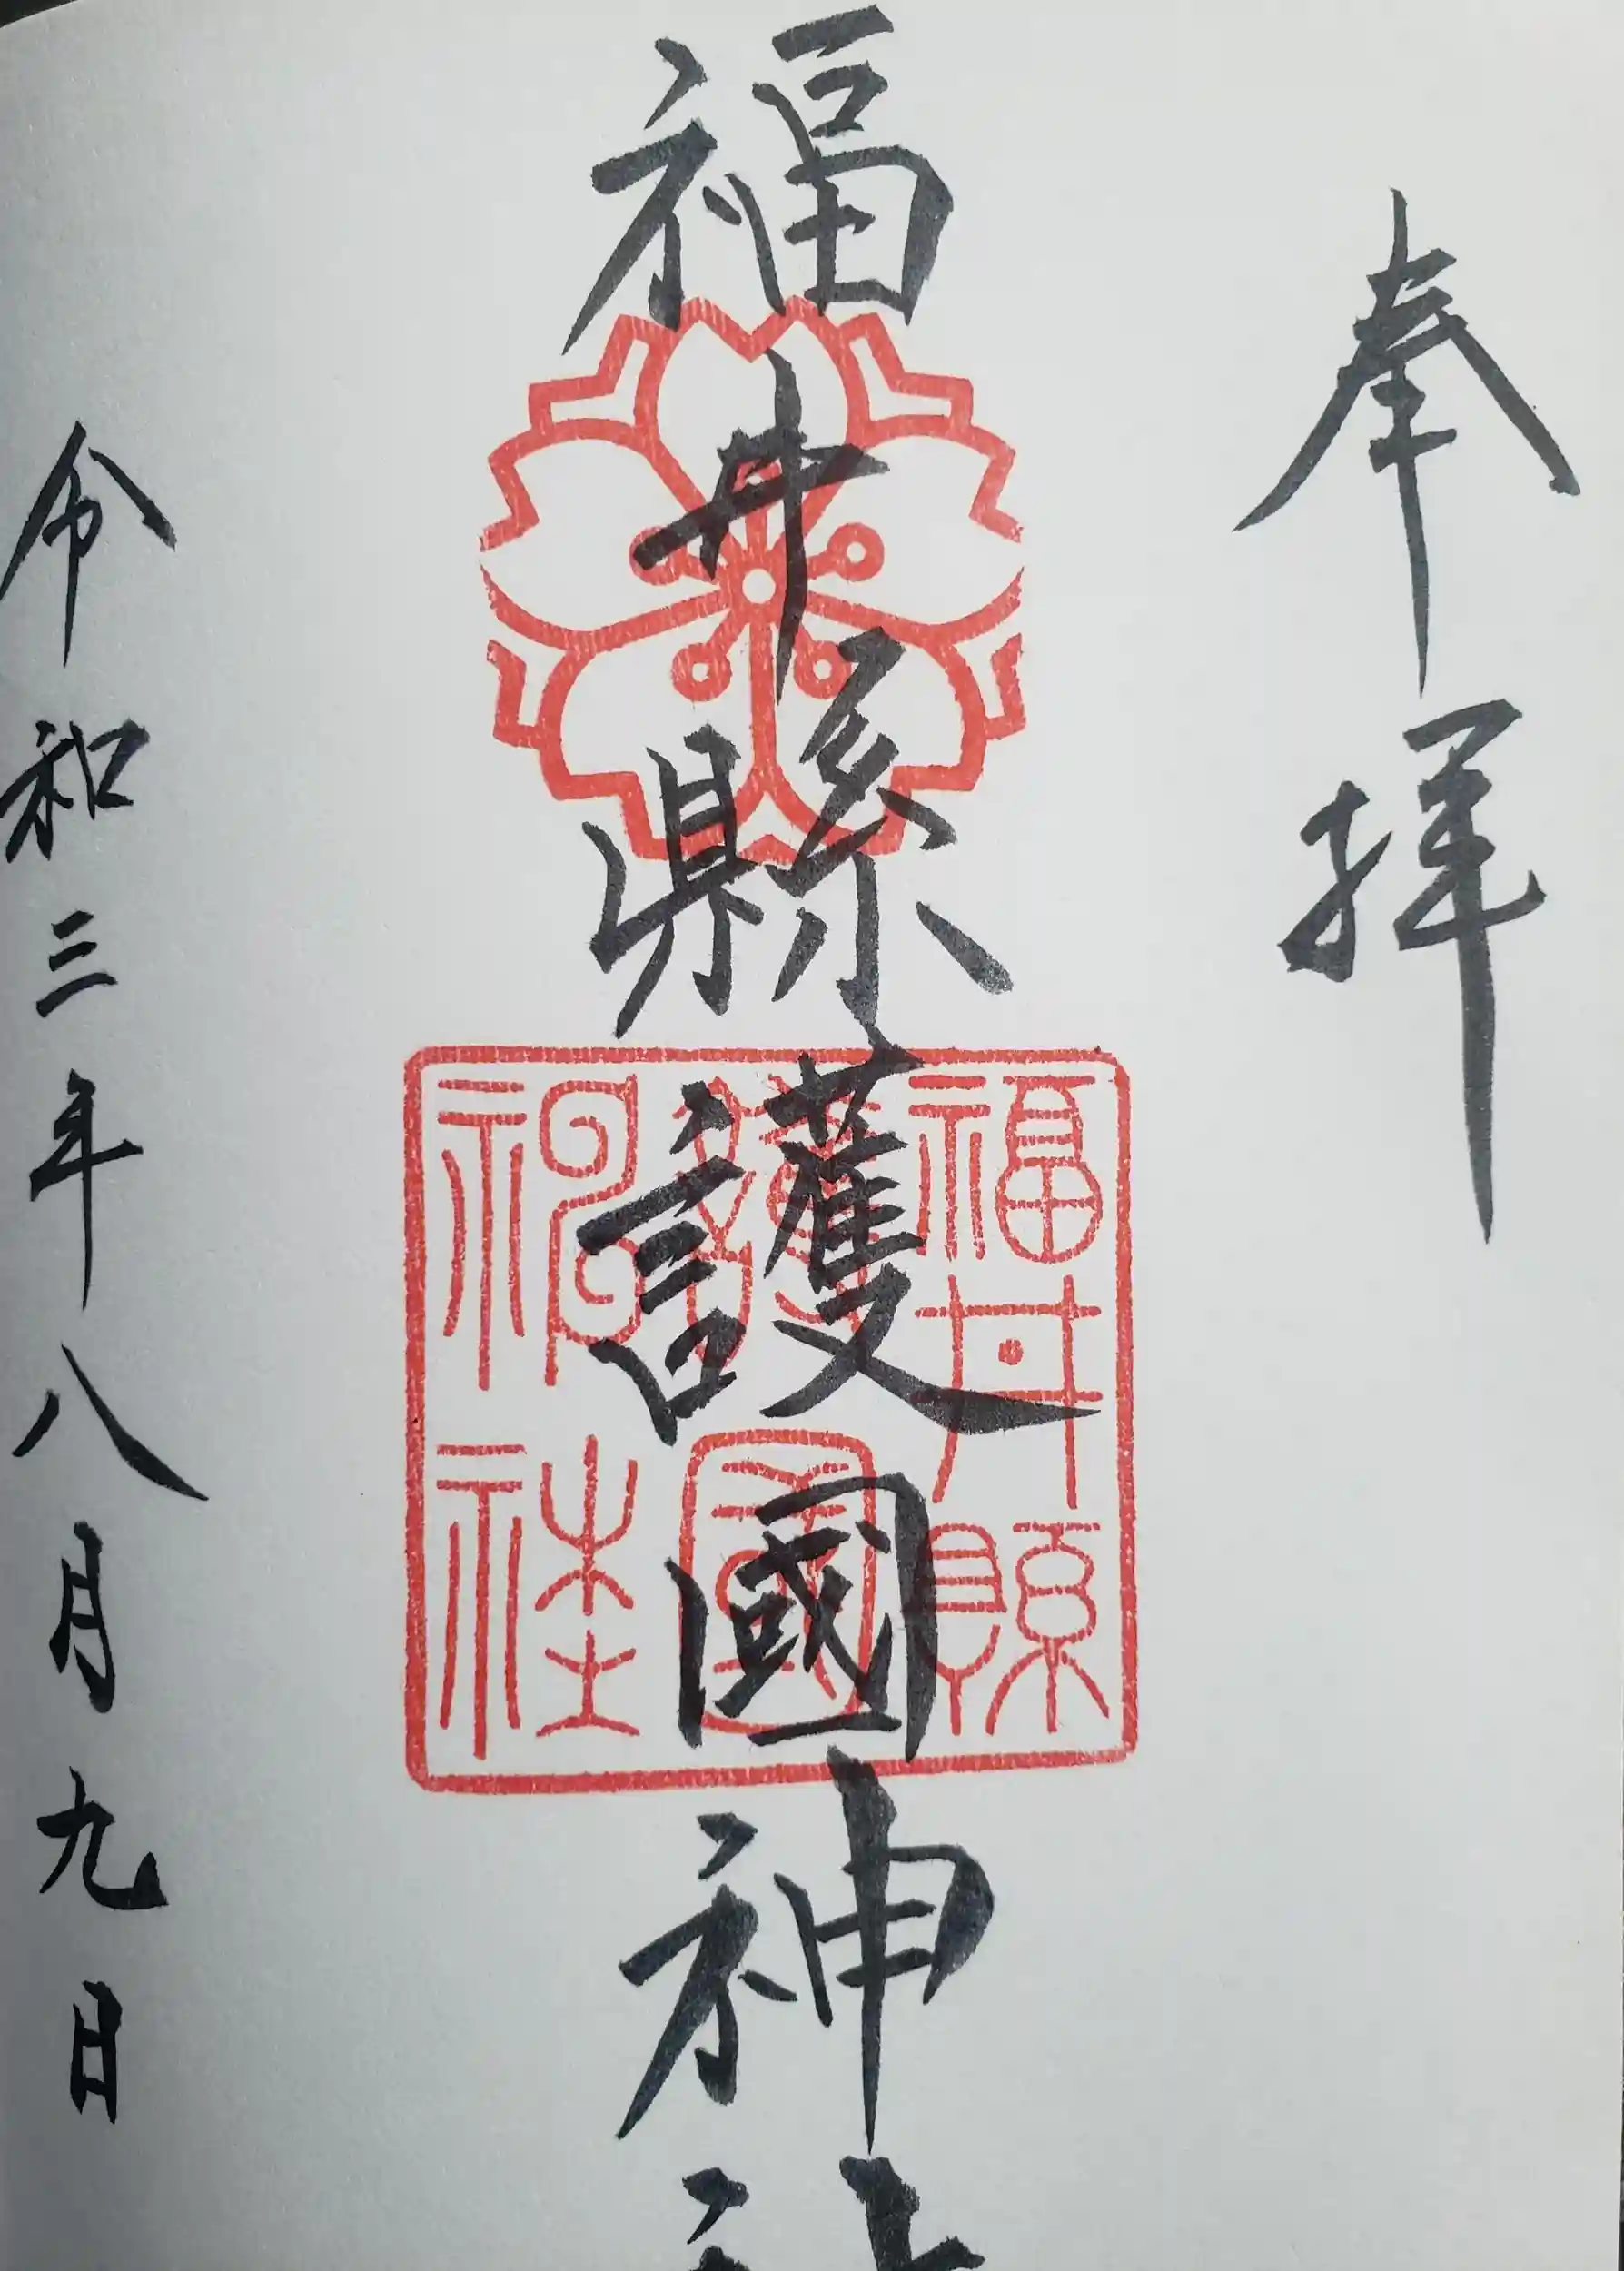 奉拝
福井縣護國神社
福井縣
護國
神社
令和三年八月九日